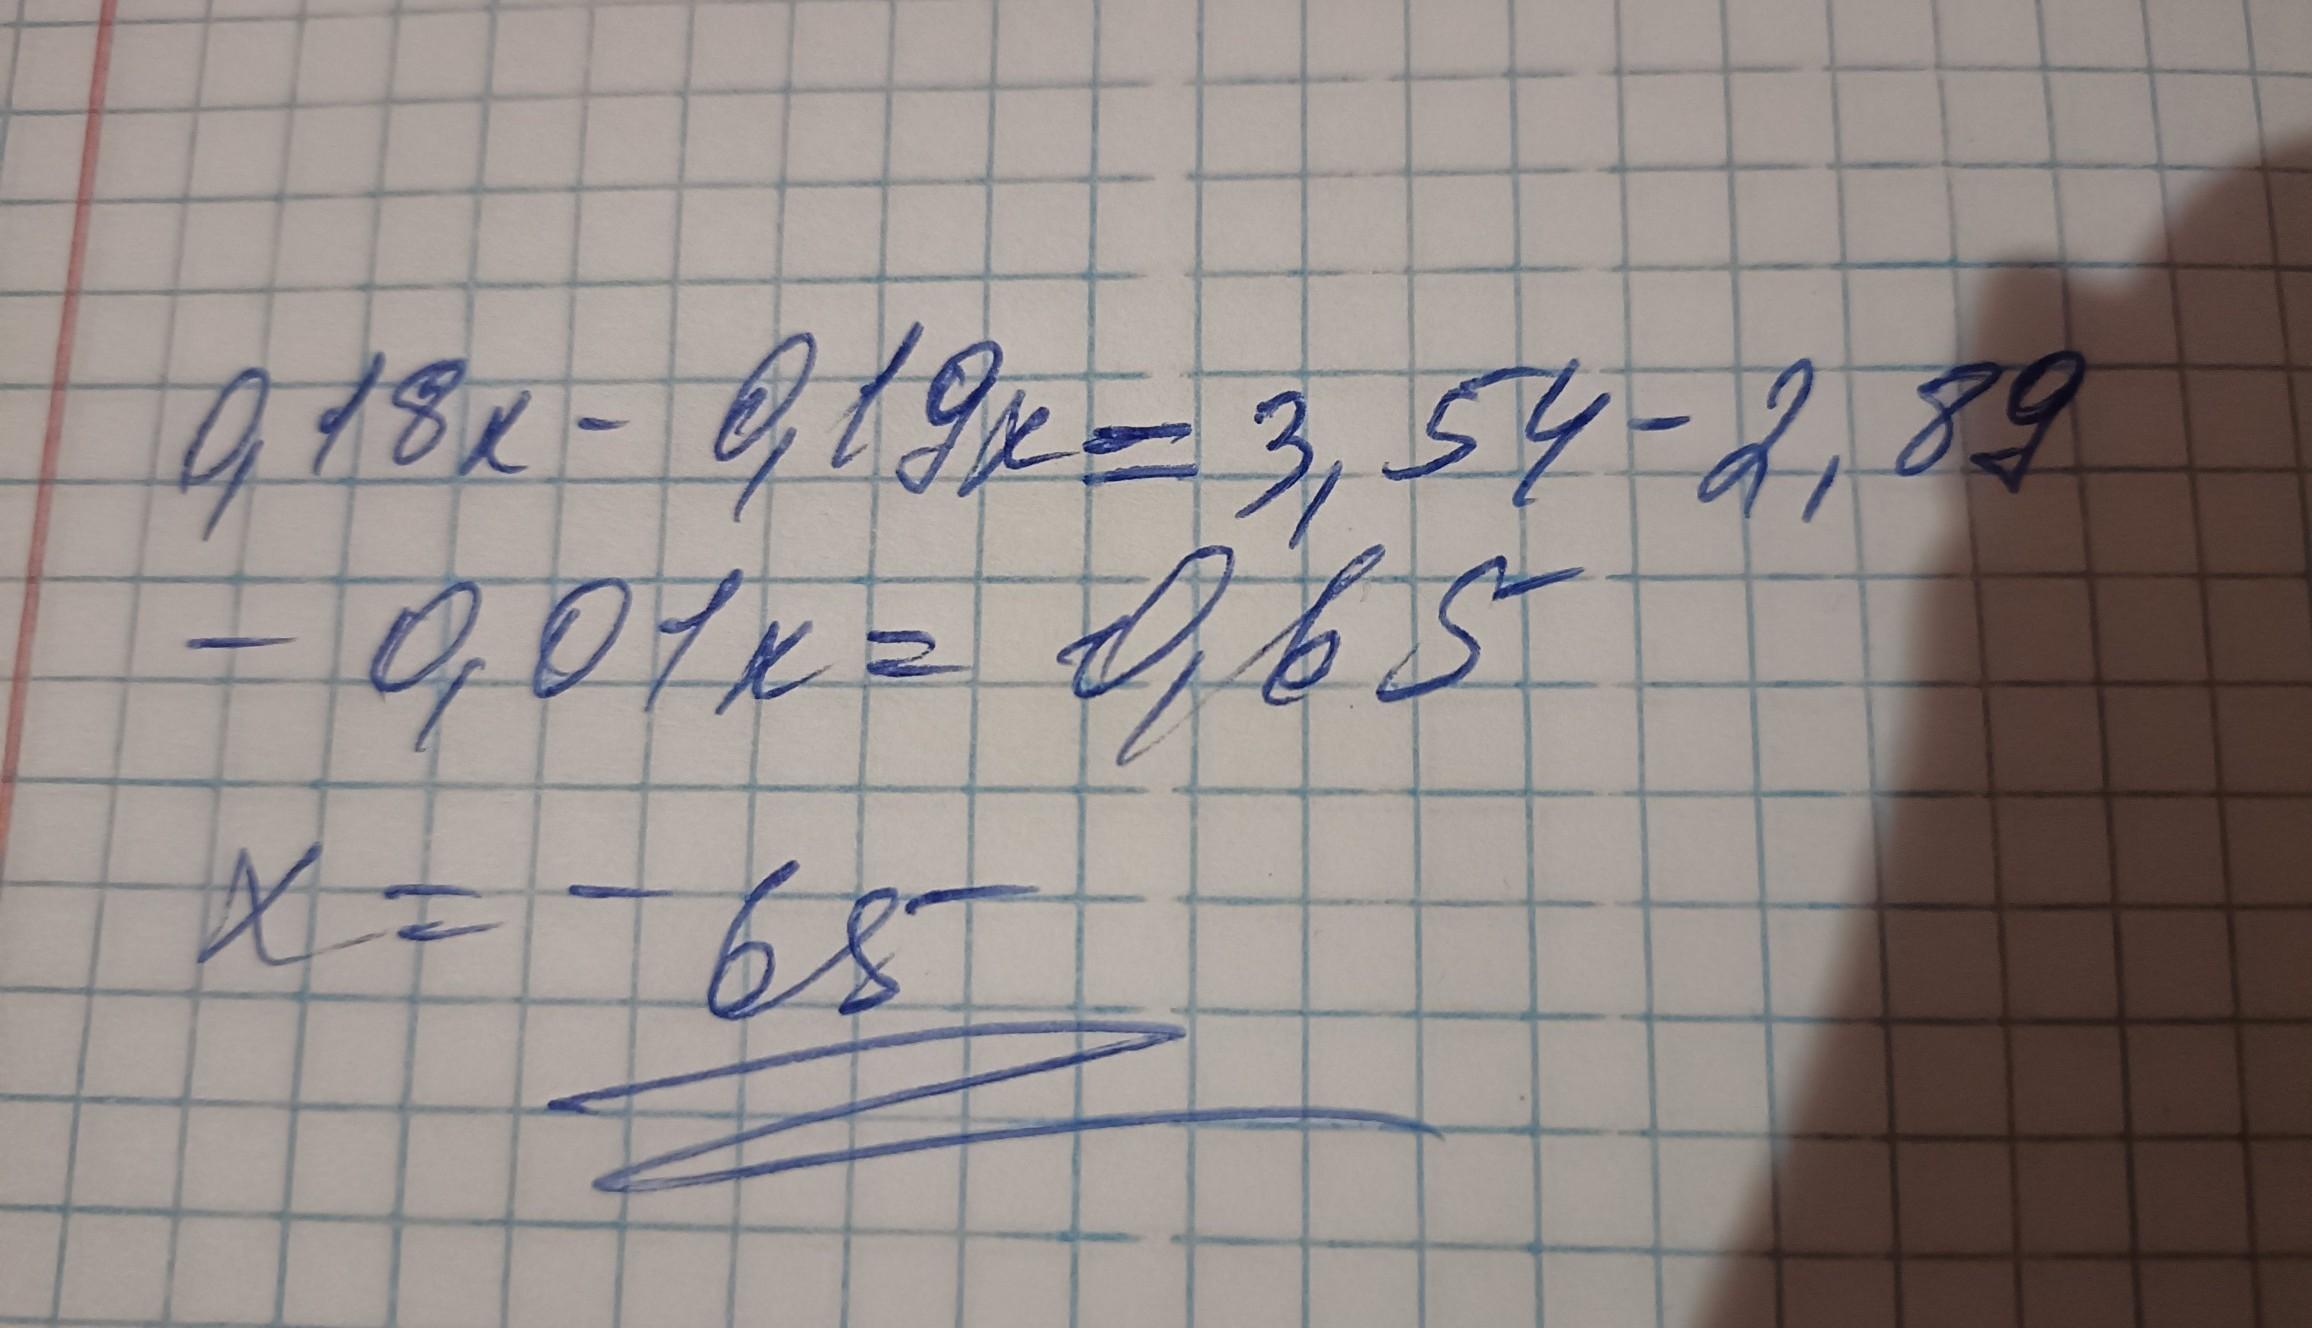 0,18x - 0,19x = 3,54 - 2,89
- 0,01x = 0,65
x = - 65